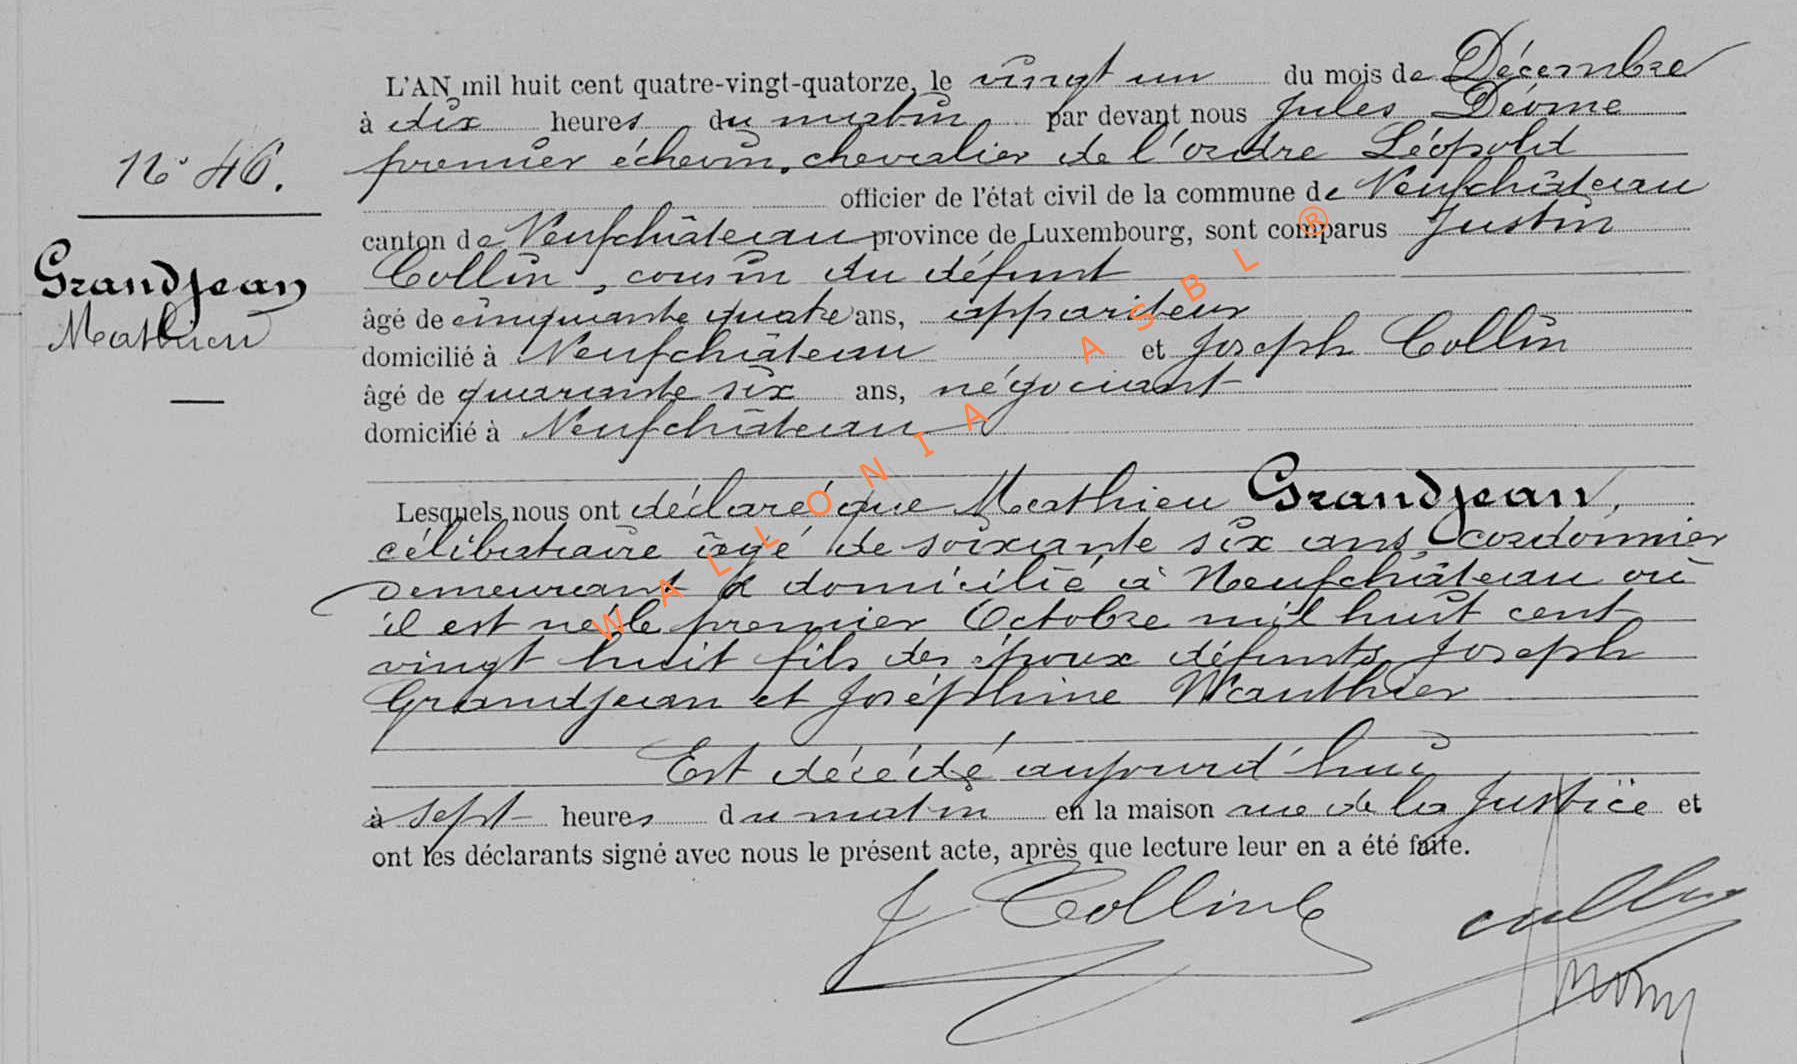 L'AN mil huit cent quatre-vingt-quatorze, le vingt un du mois de Décembre
à dix heures du matin par devant nous Jules Déome
N° 46.
premier échevin, chevalier de l'ordre Léopold
officier de l'état civil de la commune de Neufchâteau
canton de Neufchâteau province de Luxembourg, sont comparus Justin
Grandjean
Mathieu
Collin, cousin du défunt
âgé de cinquante quatre ans, appariteur
domicilié à Neufchâteau et Joseph Collin
âgé de quarante six ans, négociant
domicilié à Neufchâteau
Lesquels nous ont déclaré que Mathieu Grandjean,
célibataire âgé de soixante six ans, cordonnier
demeurant & domicilié à Neufchâteau où
il est né le premier Octobre mil huit cent
vingt huit fils des époux défunts Joseph
Grandjean et Joséphine Wauthier
Est décédé aujourd'hui
à sept heures du matin en la maison rue de la Justice et
ont les déclarants signé avec nous le présent acte, après que lecture leur en a été faite.
J Collin
Collin
WALLONIA ASBL ®